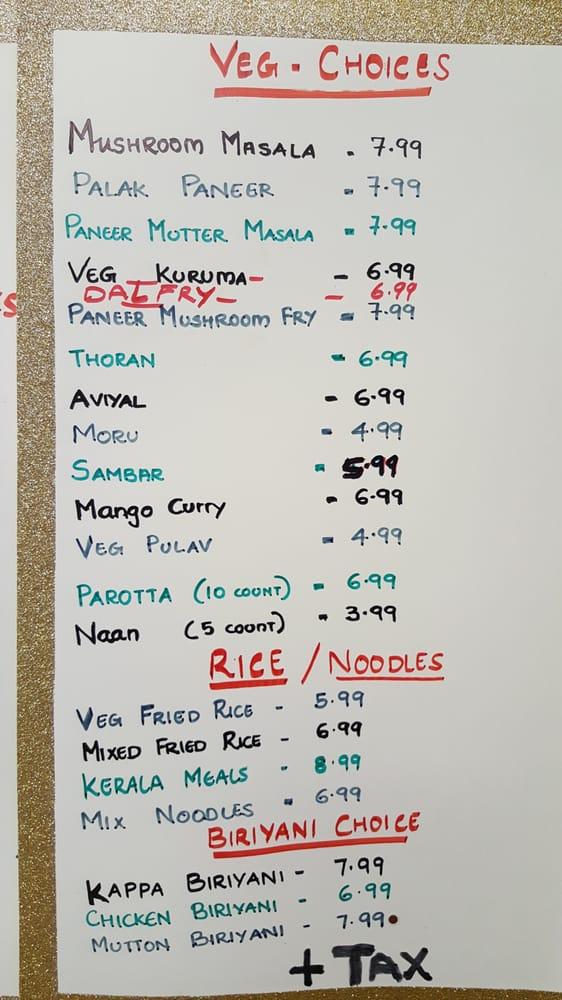 VEG - CHOICES
MUSHROOM MASALA - 7.99
PALAK PANEER - 7.99
PANEER MUTTER MASALA - 7.99
VEG KURUMA - - 6.99
DAL FRY - - 6.99
PANEER MUSHROOM FRY - 7.99
THORAN - 6.99
AVIYAL - 6.99
MORU - 4.99
SAMBAR - 5.99
Mango Curry - 6.99
VEG PULAV - 4.99
PAROTTA (10 COUNT) - 6.99
Naan (5 COUNT) - 3.99
RICE / NOODLES
VEG FRIED RICE - 5.99
MIXED FRIED RICE - 6.99
KERALA MEALS - 8.99
MIX NOODLES - 6.99
BIRIYANI CHOICE
KAPPA BIRIYANI - 7.99
CHICKEN BIRIYANI - 6.99
MUTTON BIRIYANI - 7.99
+ TAX